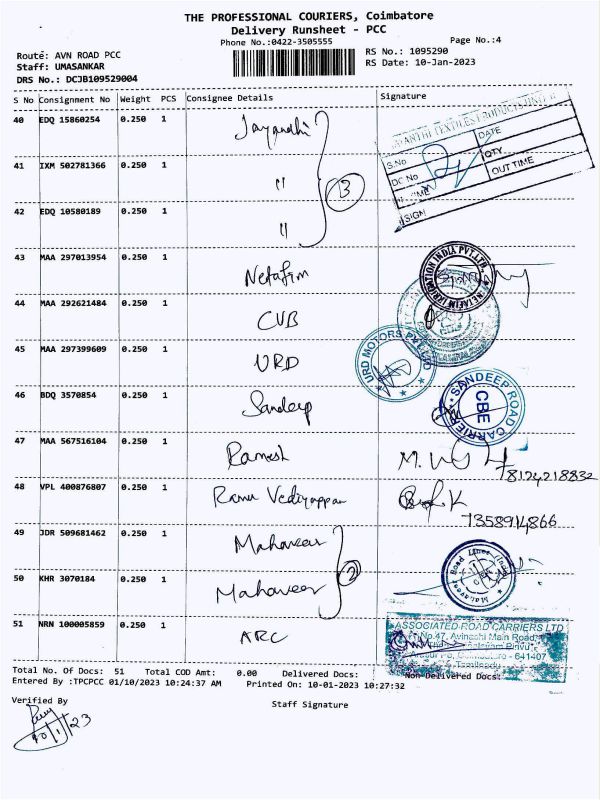 THE PROFESSIONAL COURIERS, Coimbatore
Delivery Runsheet - PCC
Phone No.:0422-3505555
Page No.:4
Route: AVN ROAD PCC
RS No.: 1095290
Staff: UMASANKAR
RS Date: 10-Jan-2023
DRS No.: DCJB109529004
S No Consignment No Weight PCS Consignee Details Signature
40 EDQ 15860254 0.250 1 Jayandhi
41 IXM 502781366 0.250 1 "
3
42 EDQ 10580189 0.250 1 "
JAYANTHI TEXTILES PRODUCTS
S.No DATE
DC No QTY
TIME OUT TIME
SIGN
43 MAA 297013954 0.250 1 Netafim
NETAFIM IRRIGATION INDIA PVT.LTD.
44 MAA 292621484 0.250 1 CUB
45 MAA 297399609 0.250 1 URD
URD MOTORS PVT LTD
46 BDQ 3570854 0.250 1 Sandeep
SANDEEP ROAD CARRIER
CBE
47 MAA 567516104 0.250 1 Ramesh
78124218832
48 VPL 400876807 0.250 1 Ramu Vediyappan
7358914866
49 JDR 509681462 0.250 1 Mahaveer
2
50 KHR 3070184 0.250 1 Mahaveer
Mahaveer Road Lines
51 NRN 100005859 0.250 1 ARC
ASSOCIATED ROAD CARRIERS LTD
No.47, Avinachi Main Road,
Coimbatore - 641407
Tamilnadu
Total No. Of Docs: 51 Total COD Amt: 0.00 Delivered Docs: Non Delivered Docs:
Entered By :TPCPCC 01/10/2023 10:24:37 AM Printed On: 10-01-2023 10:27:32
Verified By
Staff Signature
10/1/23